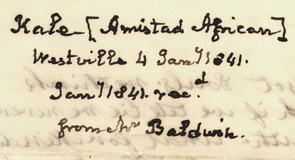 Kale [Amistad African]
Westville 4 Jany 1841.
Jany 1841. rec.d
from Mr Baldwin.